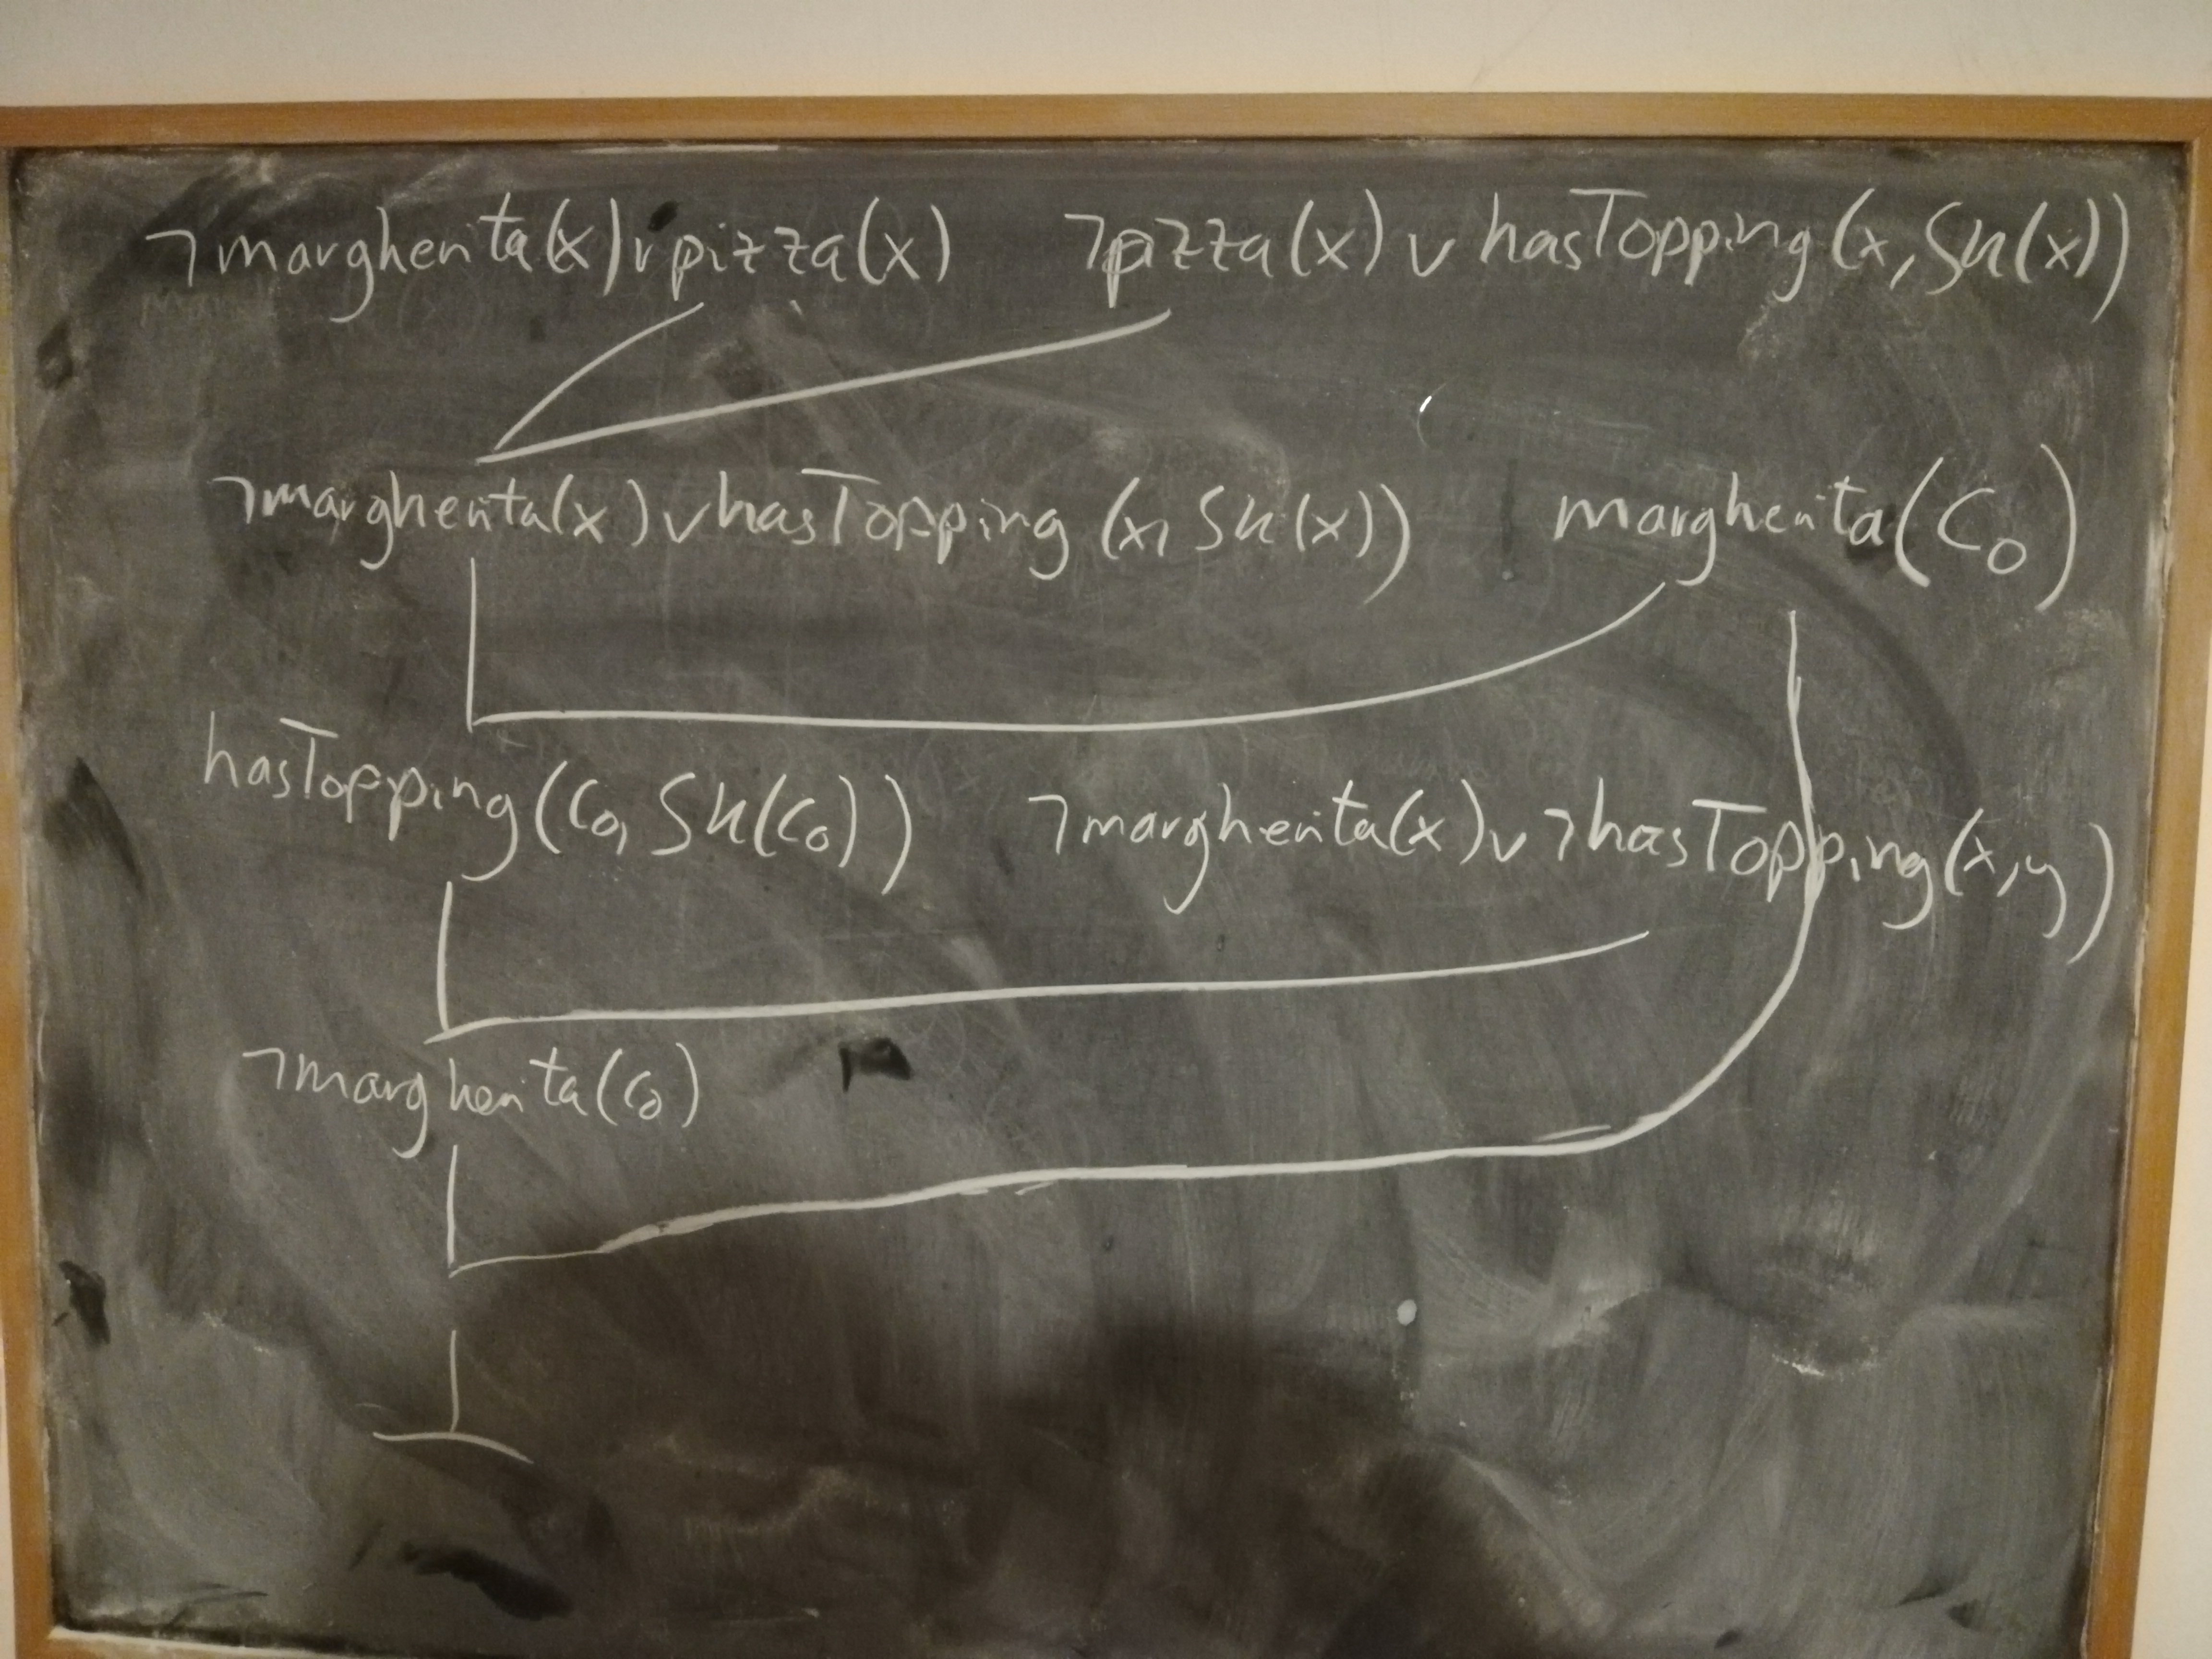 ¬margherita(x)∨pizza(x) ¬pizza(x)∨hasTopping(x,Sk(x))
¬margherita(x)∨hasTopping(x,Sk(x)) margherita(C₀)
hasTopping(C₀,Sk(C₀)) ¬margherita(x)∨¬hasTopping(x,y)
¬margherita(C₀)
⊥